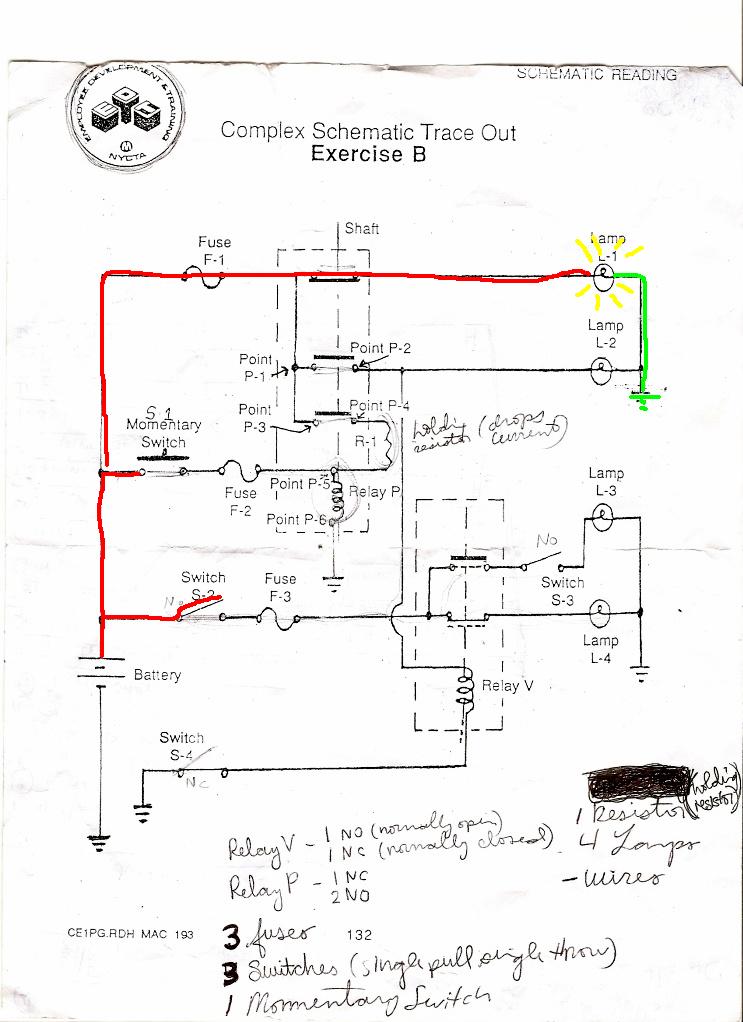 SCHEMATIC READING
EMPLOYEE DEVELOPMENT & TRAINING
E D T
M
NYCTA
Complex Schematic Trace Out
Exercise B
Shaft
Fuse
F-1
Lamp
L-1
Lamp
L-2
Point
P-1
Point P-2
Point
P-3
Point P-4
S1
Momentary
Switch
R-1
holding
resistor (drops
current)
Fuse
F-2
Point P-5
Relay P
Point P-6
Lamp
L-3
NO
Switch
S-3
Switch
S-2
Fuse
F-3
Lamp
L-4
Battery
Relay V
Switch
S-4
NC
1 Resistor (holding resistor)
4 Lamps
- wires
Relay V - 1 NO (normally open)
1 NC (normally closed)
Relay P - 1 NC
2 NO
CE1PG.RDH MAC 193
132
3 fuses
3 Switches (single pull single throw)
1 Mommentary Switch